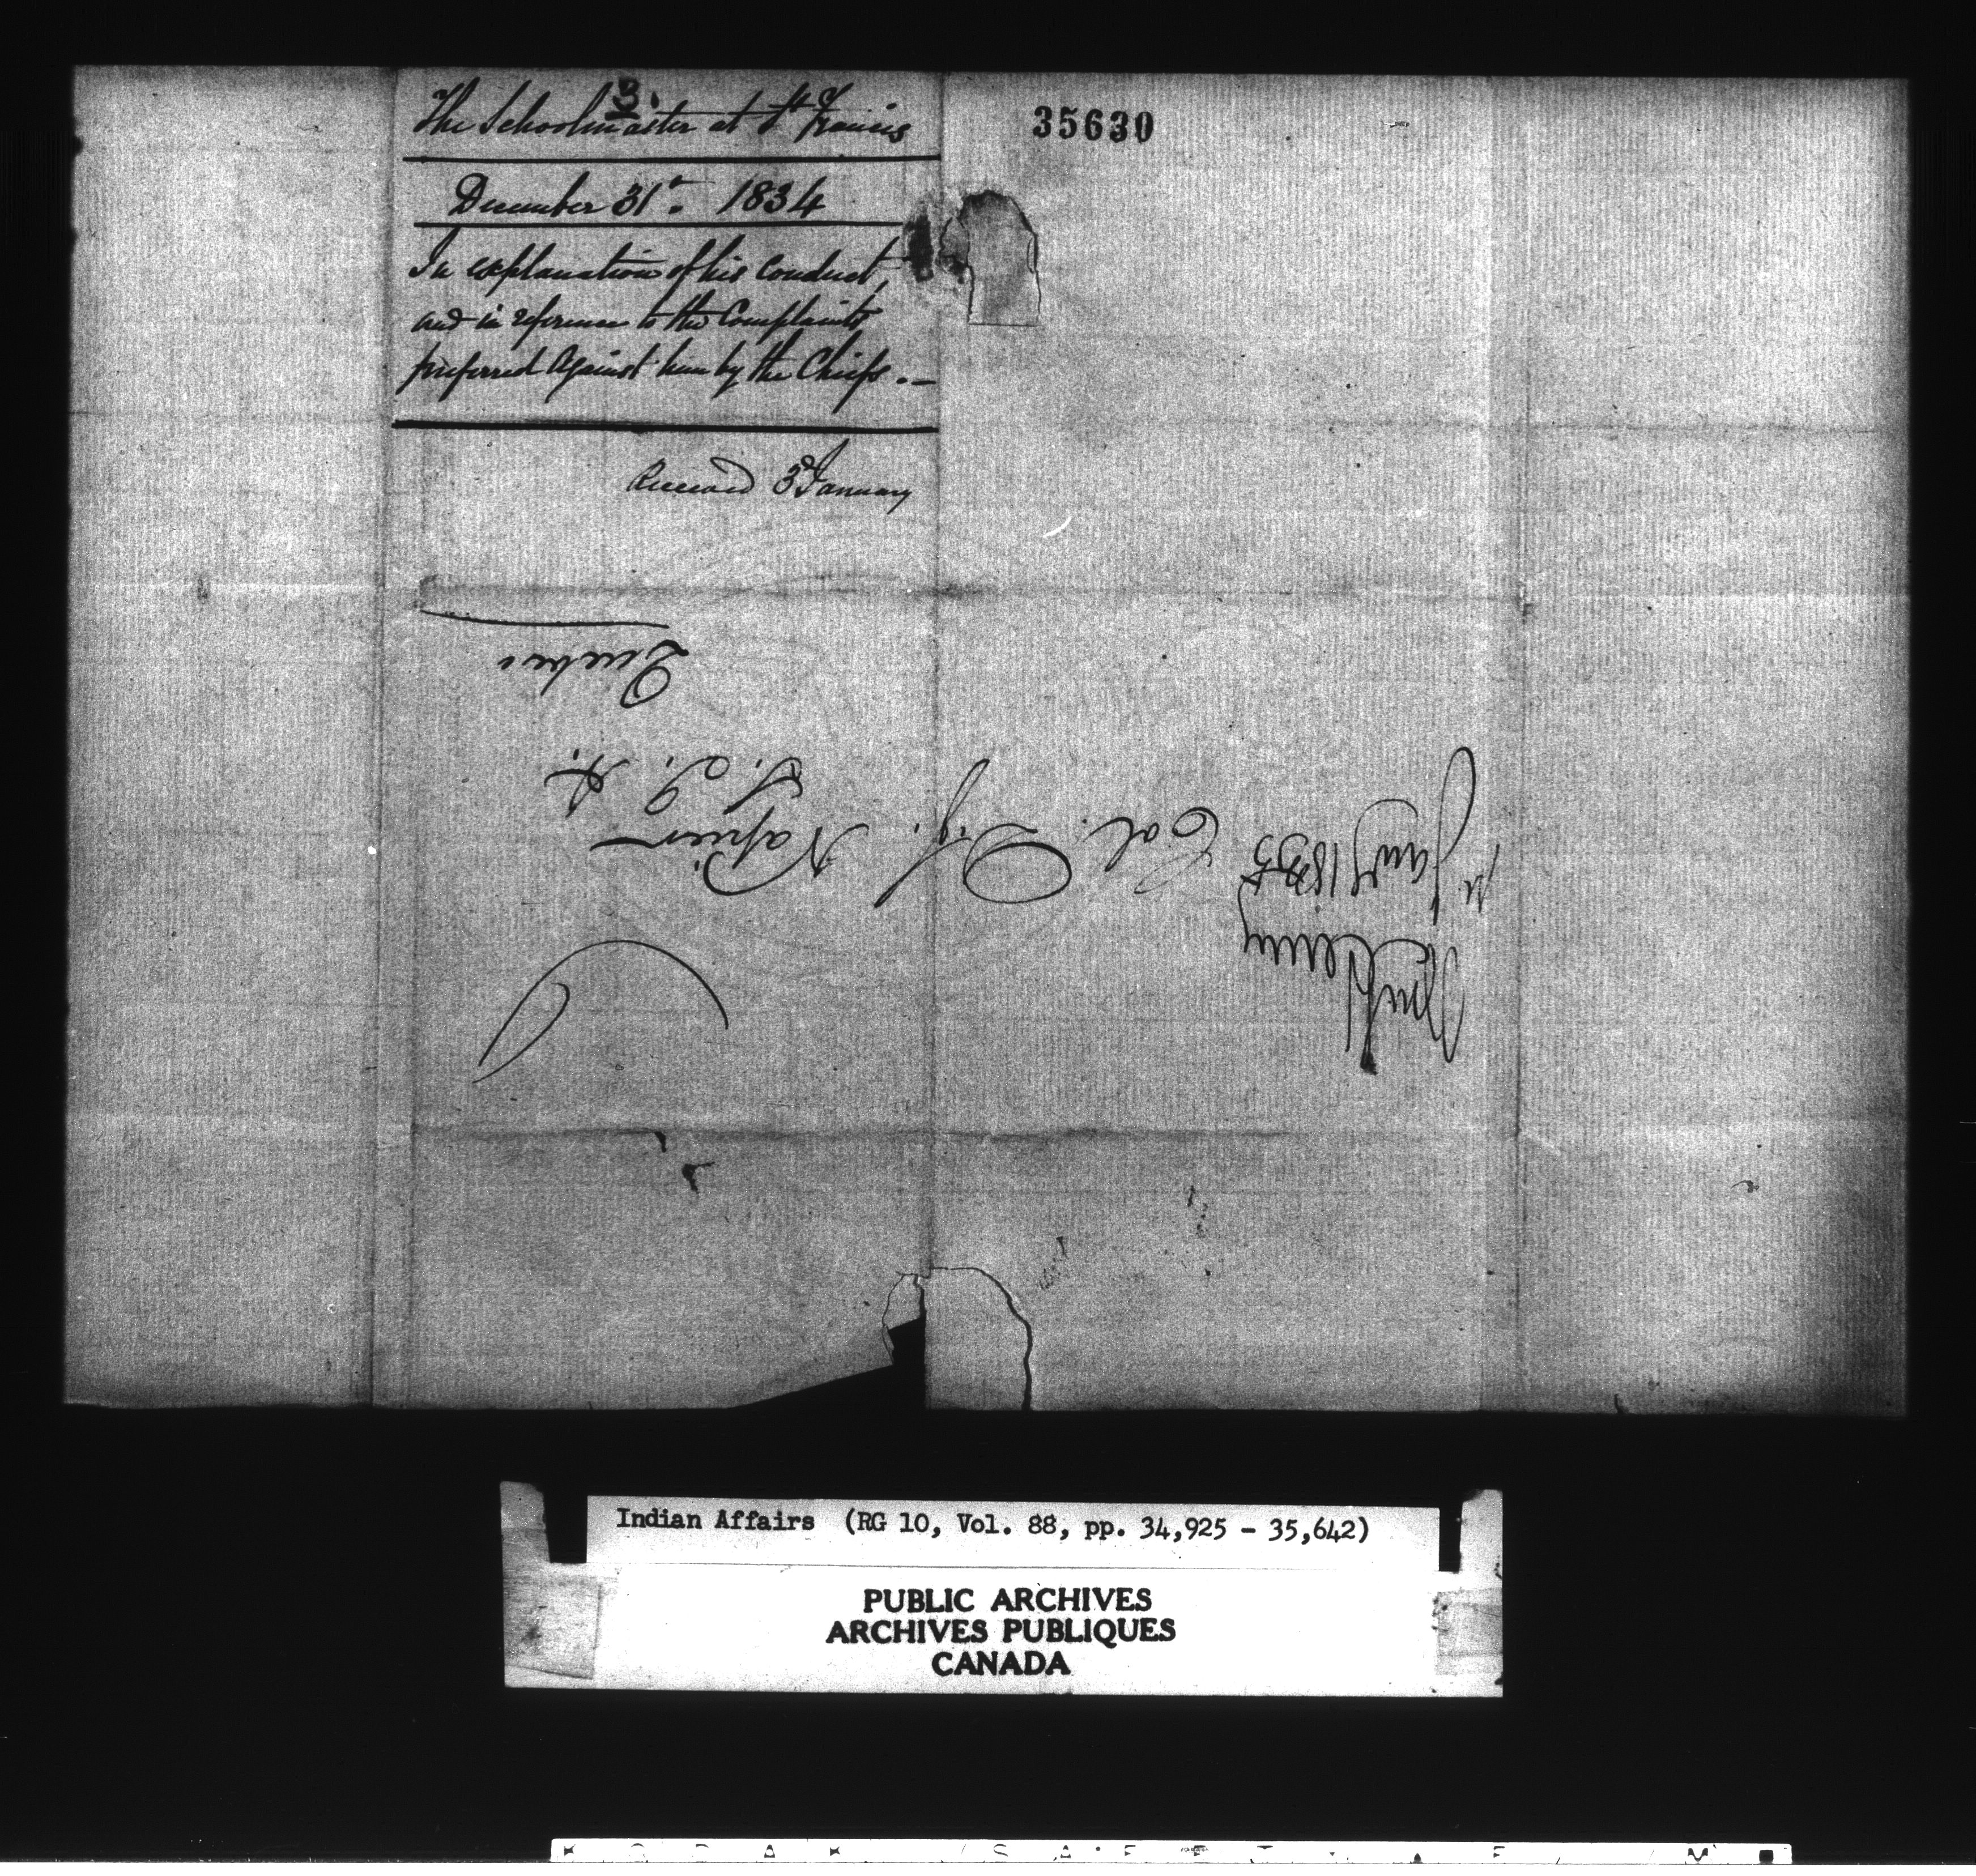 3.
The Schoolmaster at St Francis
35630
December 31st. 1834
In explanation of his Conduct,
and in reference to the Complaints
preferred against him by the Chiefs. –
Received 3d January
Quebec
Col. Napier
S. I. A.
Jany 1835
Indian Affairs (RG 10, Vol. 88, pp. 34,925 - 35,642)
PUBLIC ARCHIVES
ARCHIVES PUBLIQUES
CANADA